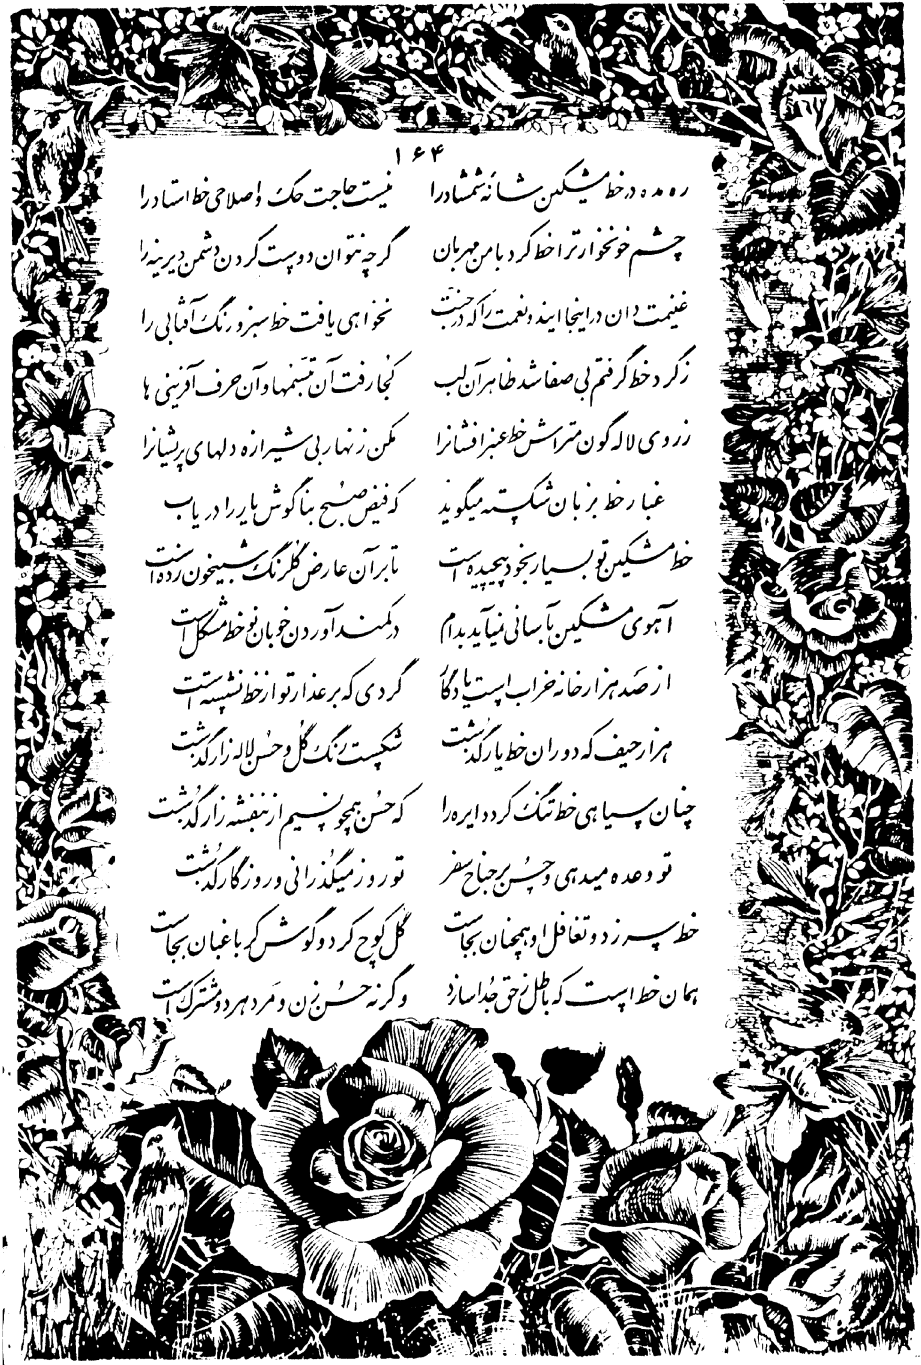 ۱۶۴
ره مده در خط مشکین شانهٔ شمشاد را نیست حاجت حک و اصلاحی خط استاد را
چشم خونخوار ترا خط کرد با من مهربان گرچه نتوان دوست کردن دشمن دیرینه را
غنیمت دان در اینجا این دو نعمت را که در جنت نخواهی یافت خط سبز و رنگ آفتابی را
ز گرد خط گرفتم بی صفا شد ظاهر آن لب کجا رفت آن تبسمها و آن حرف آفرینی ها
ز روی لاله گون متراش خط عنبر افشانرا مکن زنهار بی شیرازه دلهای پریشانرا
غبار خط بزبان شکسته میگوید که فیض صبح بناگوش یار را دریاب
خط مشکین تو بسیار بخود پیچیده است تا بر آن عارض گلرنگ شبیخون زده است
آهوی مشکین بآسانی نمیآید بدام در کمند آوردن خوبان نو خط مشکل است
از صد هزار خانه خراب است یادگار گردی که بر عذار تو از خط نشسته است
هزار حیف که دوران خط یار گذشت شکست رنگ گل و حسن لاله زار گذشت
چنان سیاهی خط تنگ کرد دایره را که حسن همچو نسیم از بنفشه زار گذشت
تو وعده میدهی و حسن بر جناح سفر تو روز میگذرانی و روزگار گذشت
خط سر زد و تغافل او همچنان بجاست گل کوچ کرد و گوش کر باغبان بجاست
همان خط است که باطل ز حق جدا سازد وگرنه حسن زن و مرد هر دو مشترک است